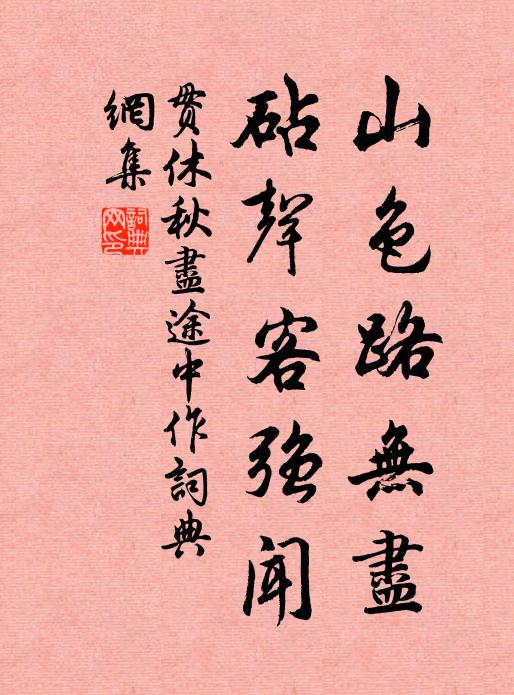 山色路無盡
砧聲客強聞
貫休秋盡途中作詞典
網集
詞典
网印